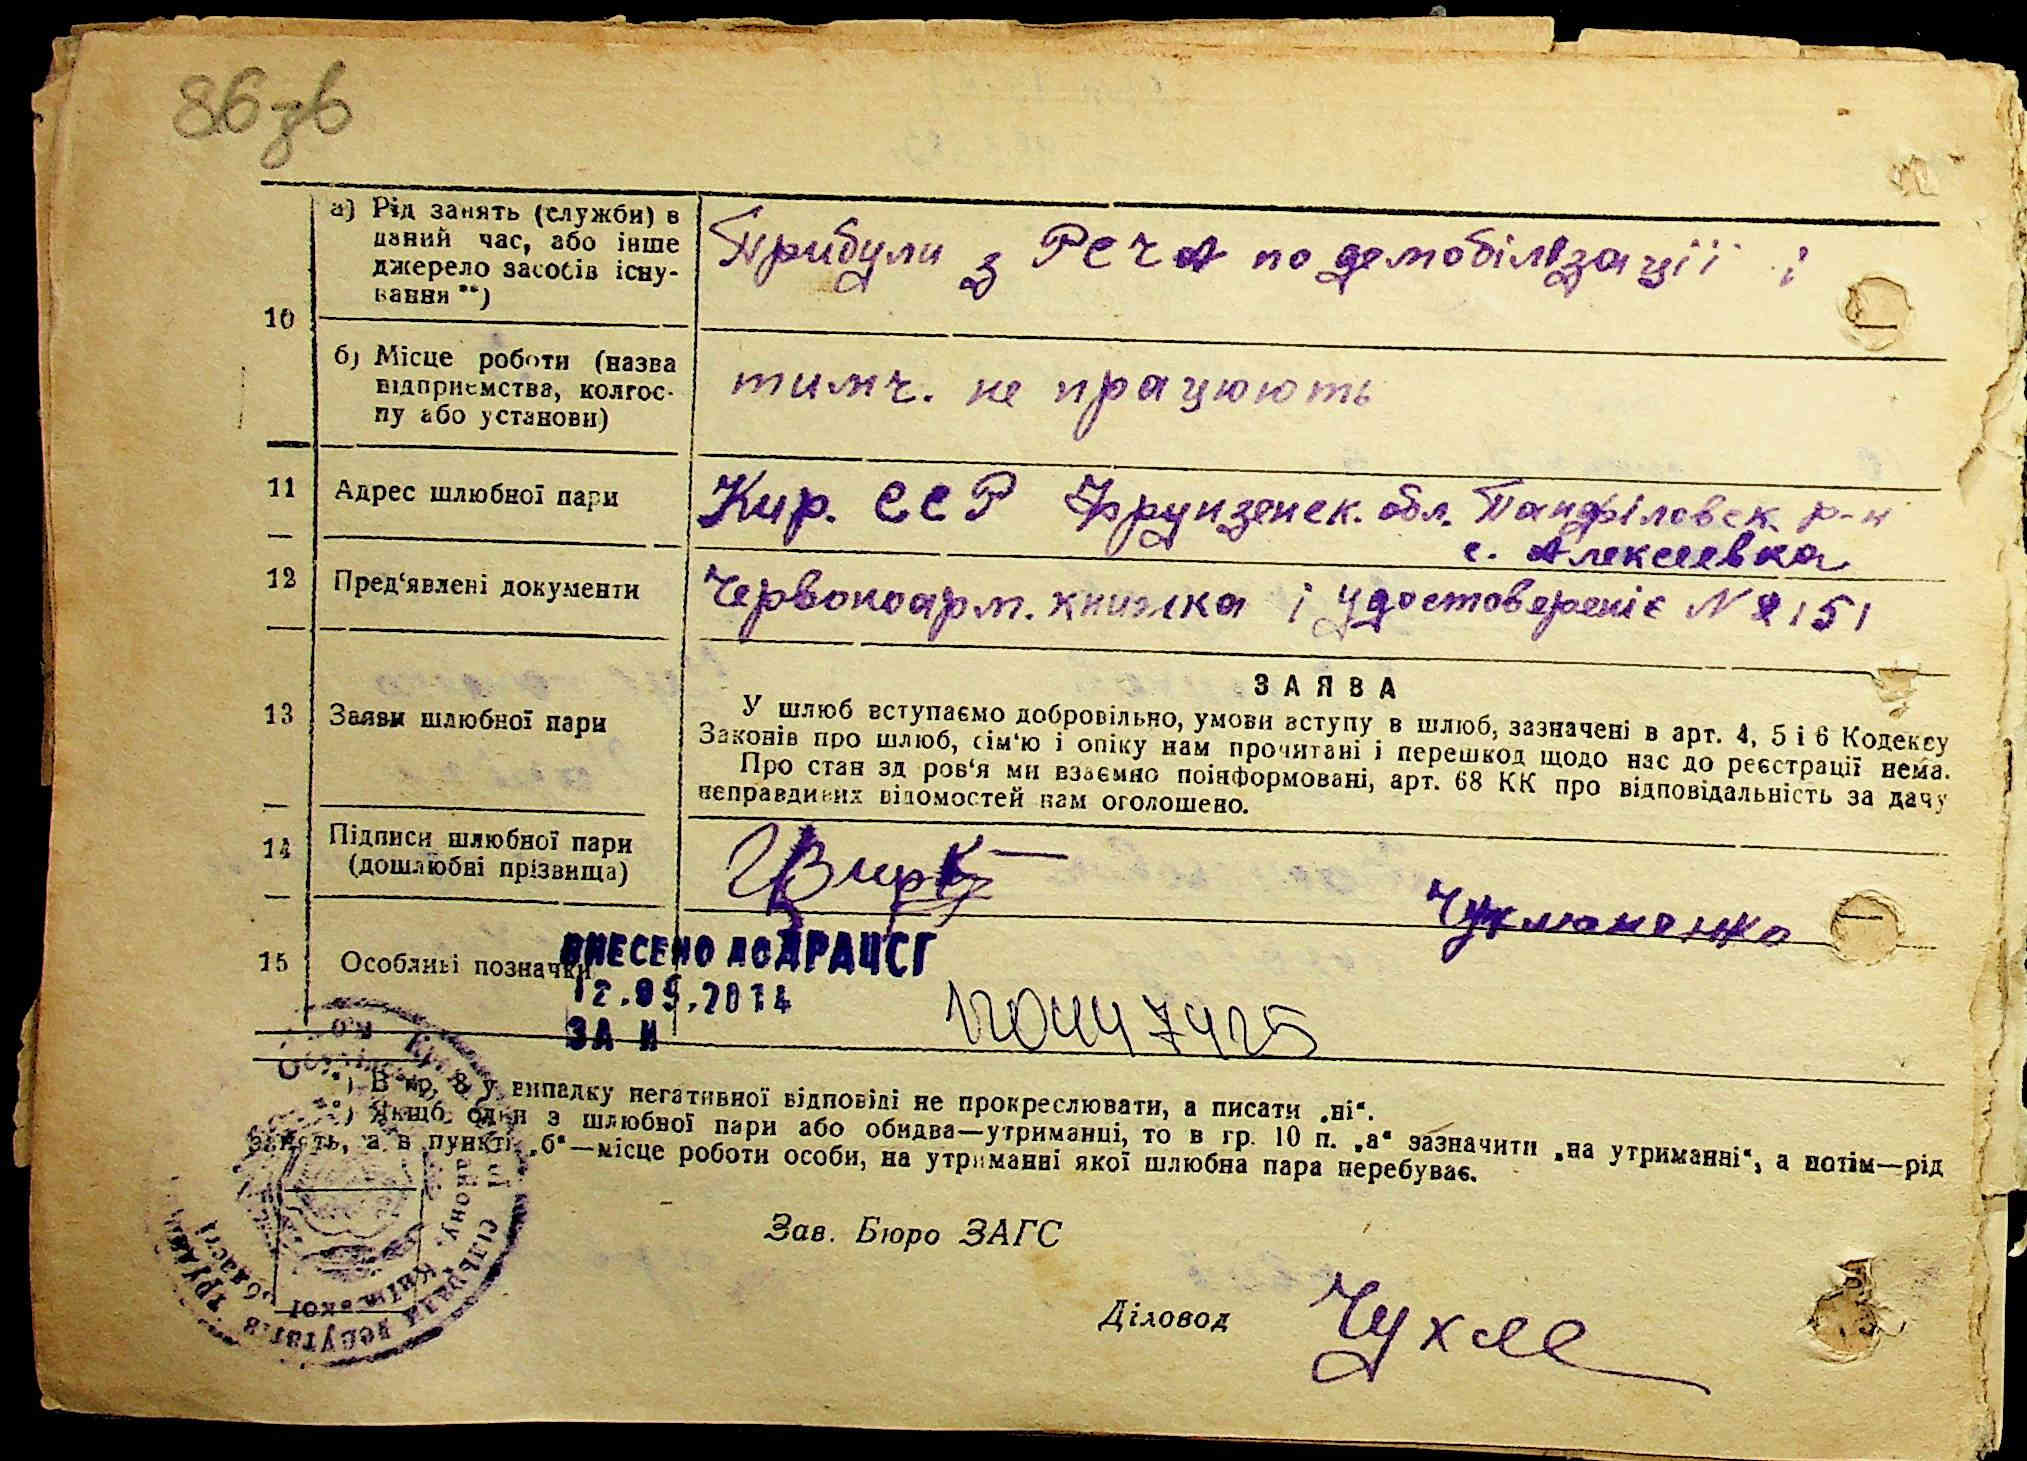 86 зв
а) Рід занять (служби) в
даний час, або інше
джерело засобів існу-
вання **)
Прибули з РСЧА по демобілізації і
10
б) Місце роботи (назва
підприємства, колгос-
пу або установи)
тимч. не працюють
11 Адрес шлюбної пари
Кир. ССР Фрунзенск. обл. Панфіловск. р-н
с. Алексеевка
12 Пред‘явлені документи
Червоноарм. книжка і удостовереніє N 2151
ЗАЯВА
13 Заяви шлюбної пари
У шлюб вступаємо добровільно, умови вступу в шлюб, зазначені в арт. 4, 5 і 6 Кодексу
Законів про шлюб, сім‘ю і опіку нам прочитані і перешкод щодо нас до реєстрації нема.
Про стан здоров‘я ми взаємно поінформовані, арт. 68 КК про відповідальність за дачу
неправдивих відомостей нам оголошено.
14 Підписи шлюбної пари
(дошлюбні прізвища)
Чухманенко
15 Особливі позначки
ВНЕСЕНО ДО ДРАЦСГ
12.09.2014
ЗА N
*) В гр. 8 у випадку негативної відповіді не прокреслювати, а писати „ні“.
**) Якщо один з шлюбної пари або обидва—утриманці, то в гр. 10 п. „а“ зазначити „на утриманні“, а потім—рід
занять, а в пункті „б“—місце роботи особи, на утриманні якої шлюбна пара перебуває.
Зав. Бюро ЗАГС
Діловод